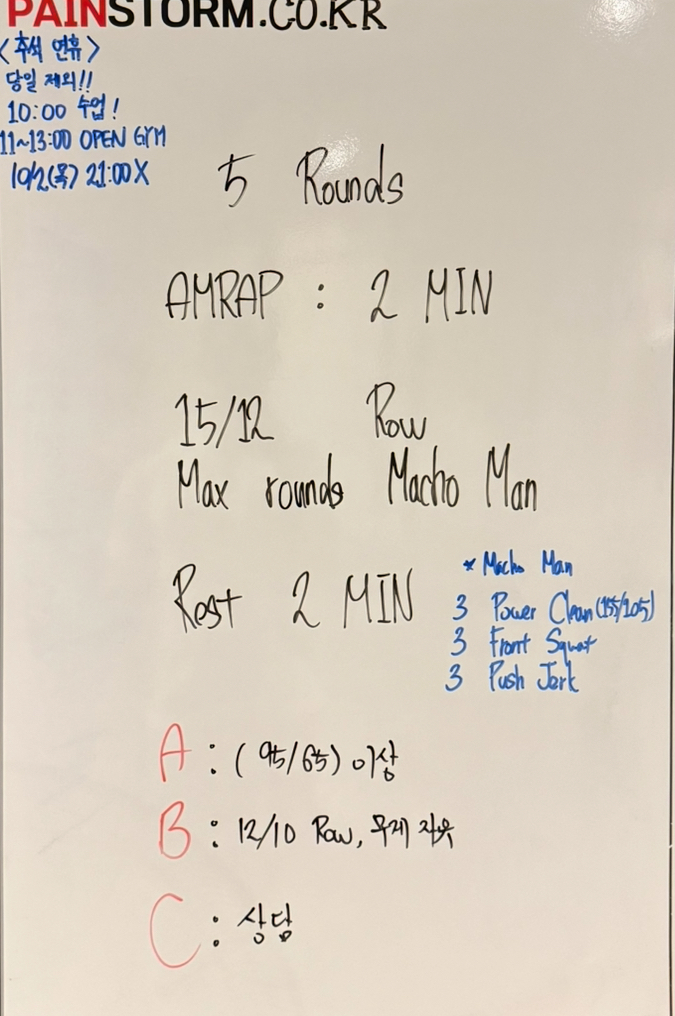 PAINSTORM.CO.KR
<추석 연휴>
당일 제외!!
10:00 수업!
11~13:00 OPEN GYM
10/2(목) 21:00 X
5 Rounds
AMRAP : 2 MIN
15/12 Row
Max rounds Macho Man
Rest 2 MIN
* Macho Man
3 Power Clean (155/105)
3 Front Squat
3 Push Jerk
A : (95/65) 이상
B : 12/10 Row, 무게 자유
C : 상담